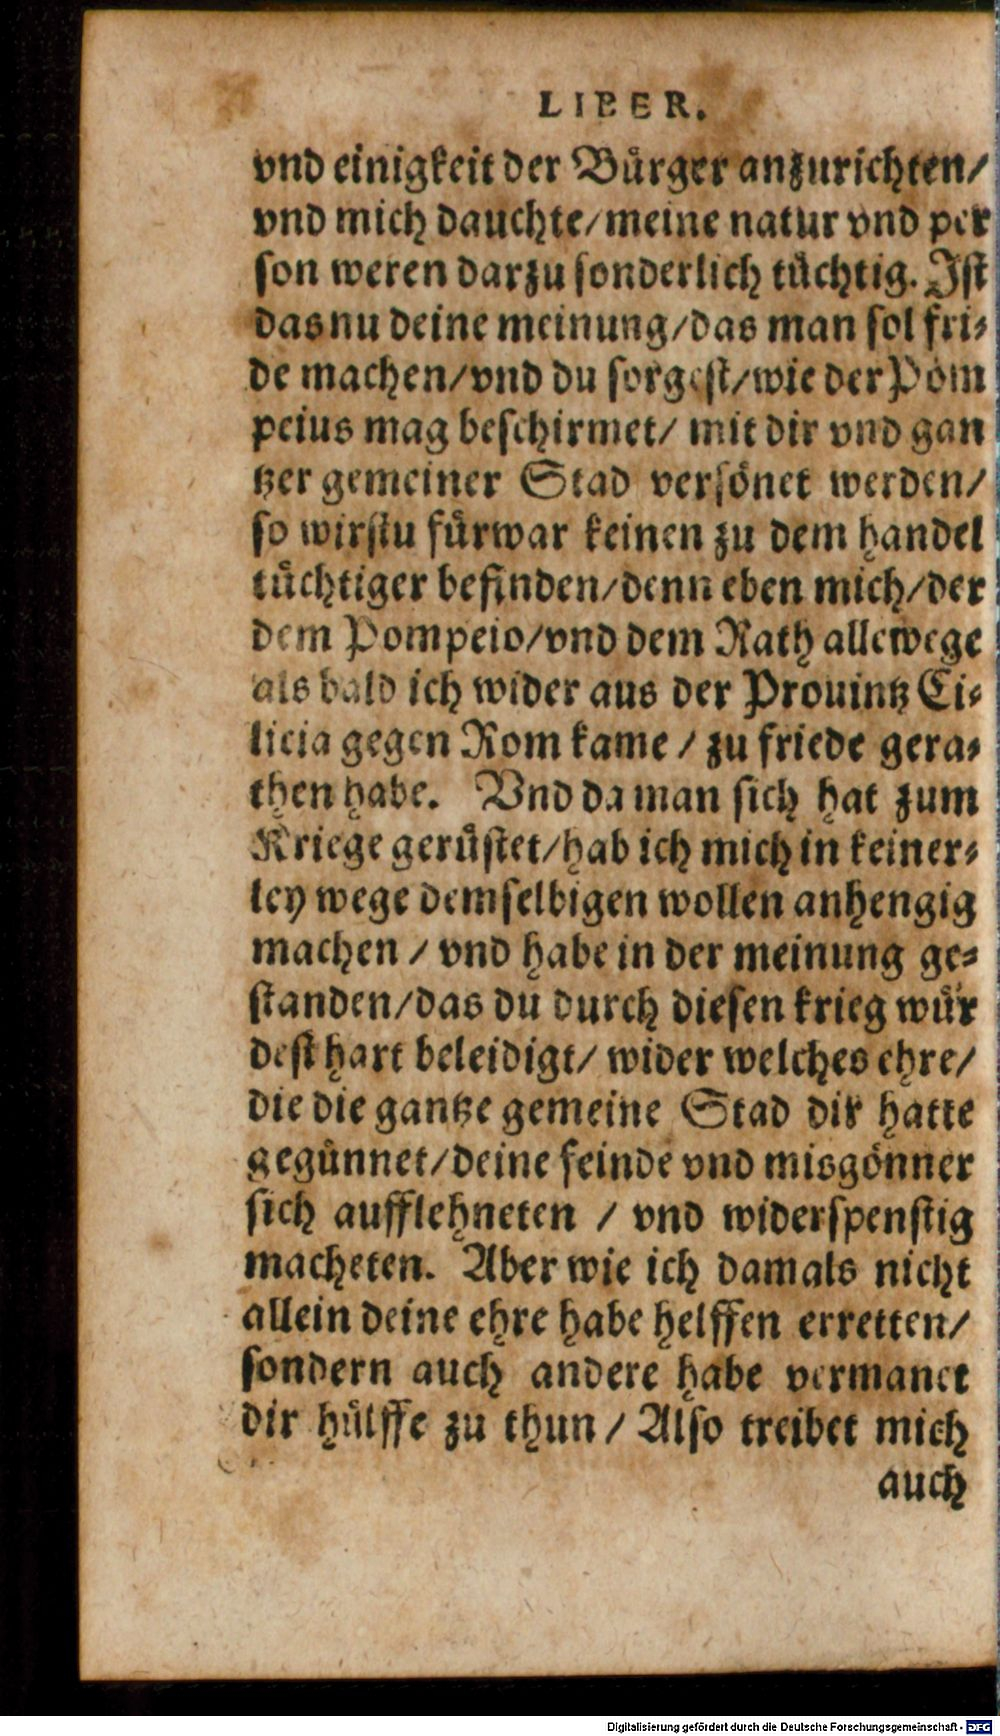 LIBER.
vnd einigkeit der Bürger anzurichten/
vnd mich dauchte/meine natur vnd per
son weren darzu sonderlich tüchtig. Ist
das nu deine meinung/das man sol fri⸗
de machen/vnd du sorgest/wie der Pom
peius mag beschirmet/ mit dir vnd gan
tzer gemeiner Stad versönet werden/
so wirstu fürwar keinen zu dem handel
tüchtiger befinden/denn eben mich/der
dem Pompeio/vnd dem Rath allewege
als bald ich wider aus der Prouintz Ci⸗
licia gegen Rom kame / zu friede gera⸗
then habe. Vnd da man sich hat zum
Kriege gerüstet/hab ich mich in keiner⸗
ley wege demselbigen wollen anhengig
machen / vnd habe in der meinung ge⸗
standen/das du durch diesen krieg wür
dest hart beleidigt/ wider welches ehre/
die die gantze gemeine Stad dir hatte
gegünnet/deine feinde vnd misgönner
sich aufflehneten / vnd widerspenstig
macheten. Aber wie ich damals nicht
allein deine ehre habe helffen erretten/
sondern auch andere habe vermanet
dir hülffe zu thun / Also treibet mich
auch
Digitalisierung gefördert durch die Deutsche Forschungsgemeinschaft - DFG